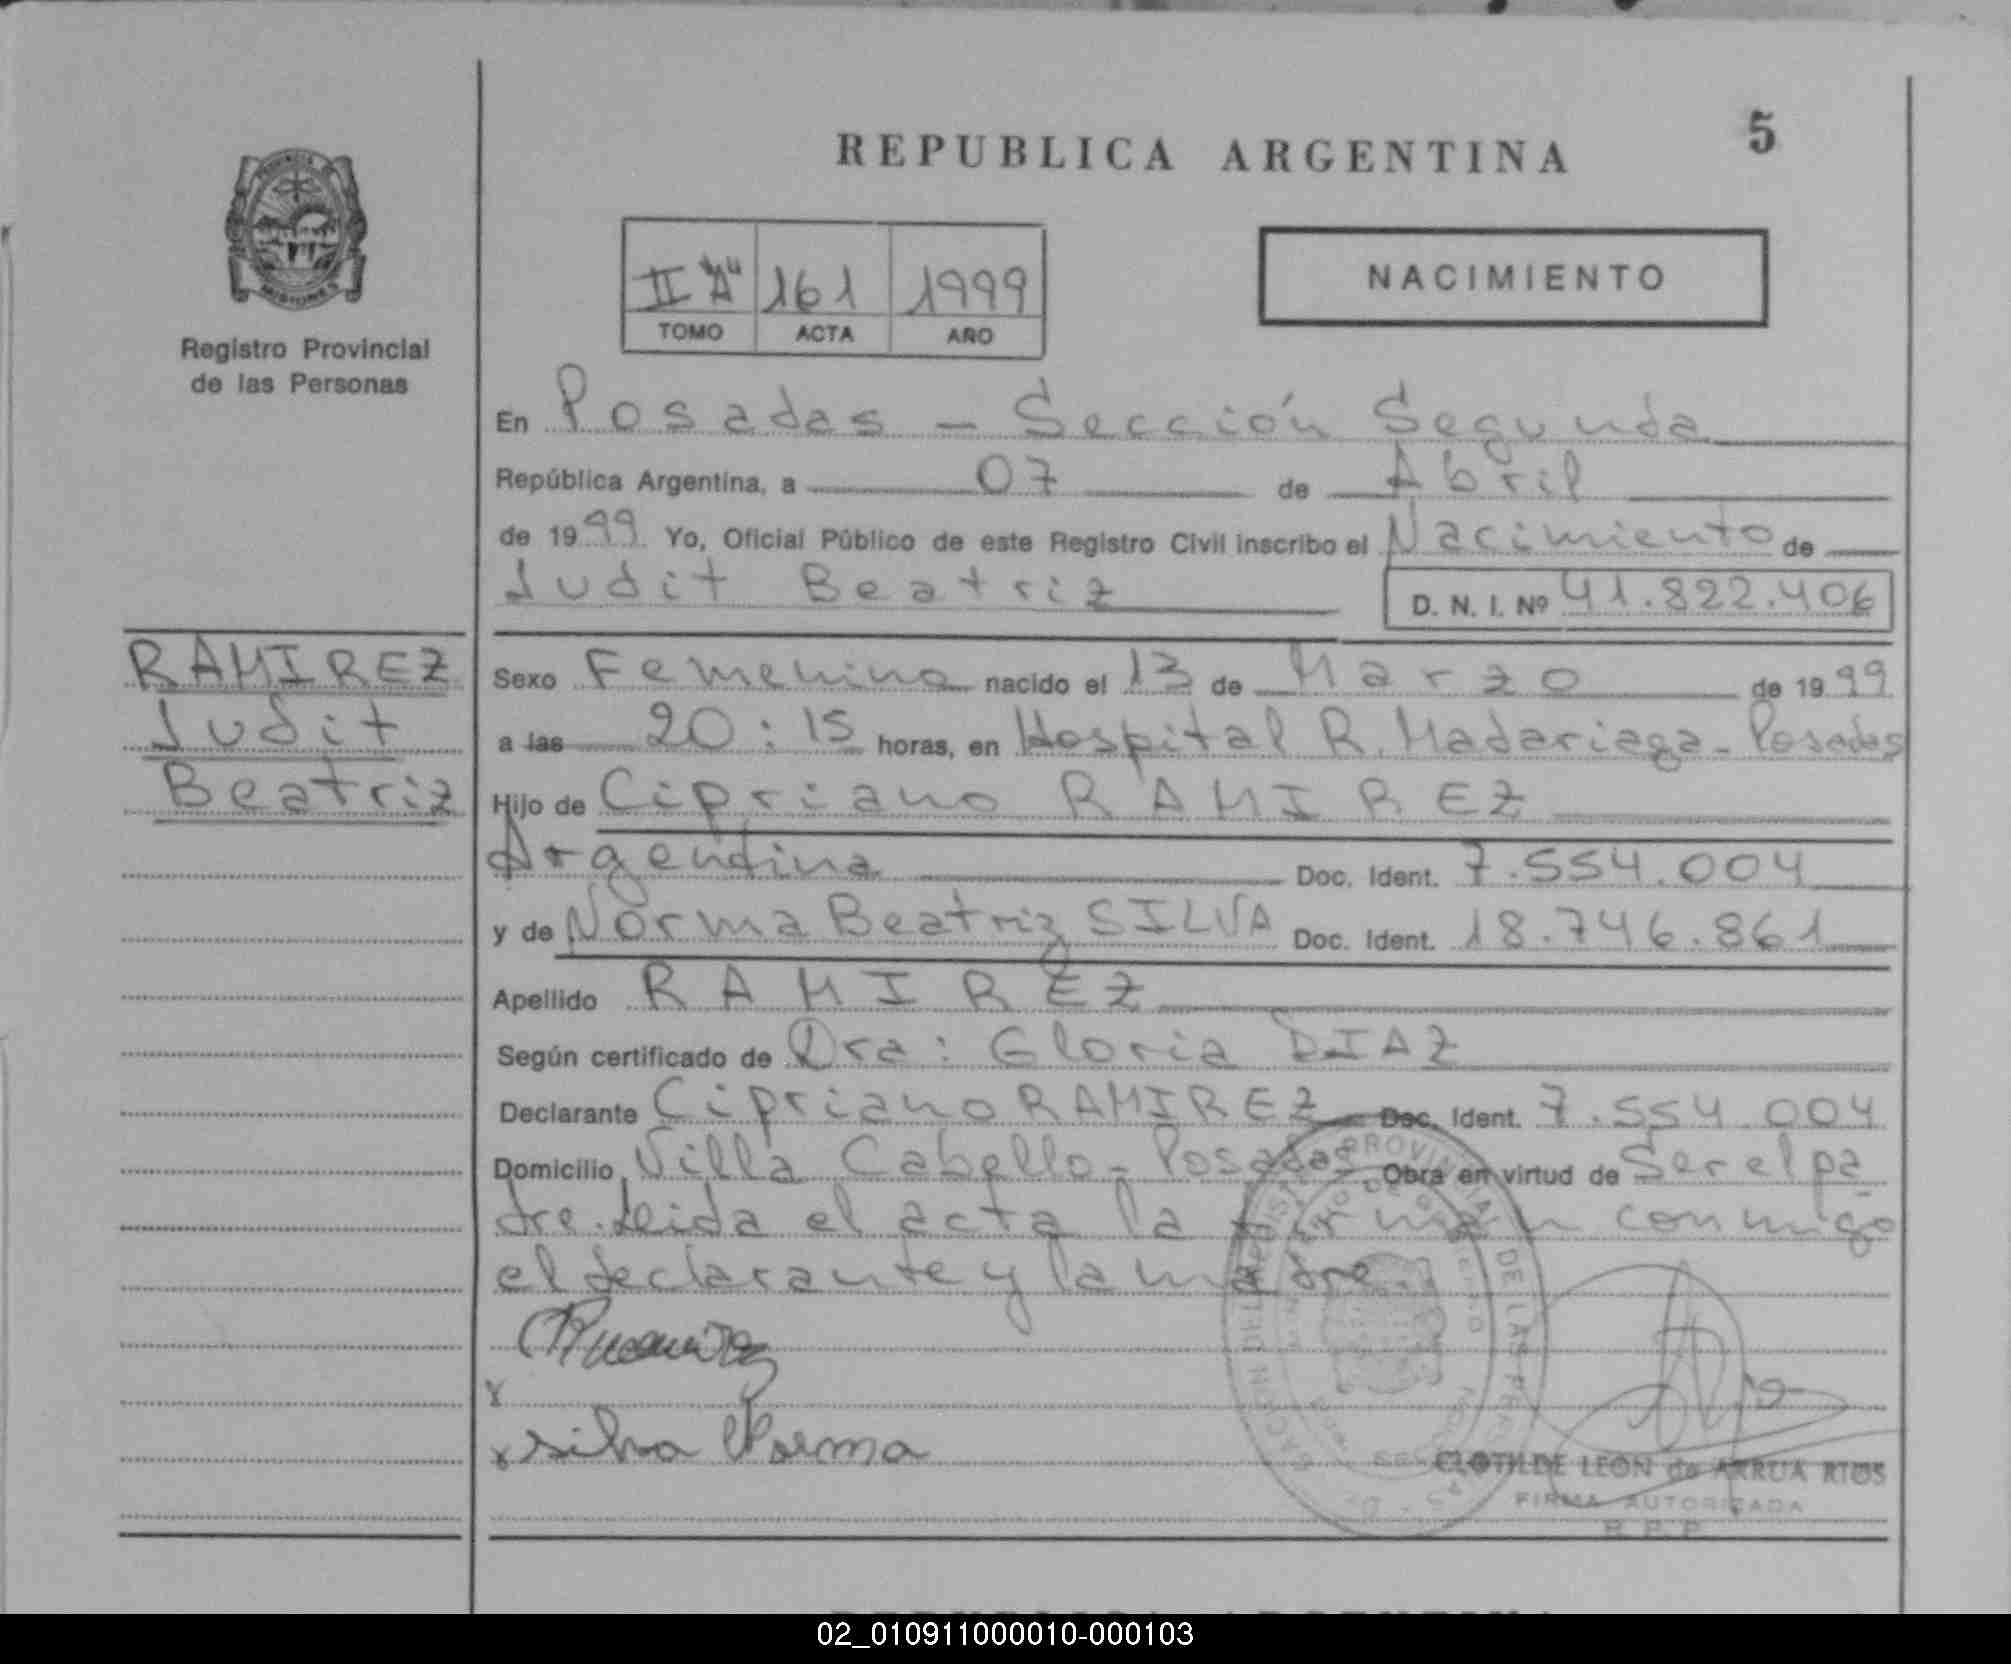 5
REPUBLICA ARGENTINA
NACIMIENTO
II "A" 161 1999
TOMO ACTA AÑO
MISIONES
Registro Provincial
de las Personas
En Posadas - Sección Segunda
República Argentina, a 07 de Abril
de 1999 Yo, Oficial Público de este Registro Civil inscribo el Nacimiento de
Judit Beatriz D. N. I. Nº 41.822.406
RAMIREZ
Judit
Beatriz
Sexo Femenino nacido el 13 de Marzo de 1999
a las 20:15 horas, en Hospital R. Madariaga - Posadas
Hijo de Cipriano RAMIREZ
Argentina Doc. Ident. 7.554.004
y de Norma Beatriz SILVA Doc. Ident. 18.746.861
Apellido RAMIREZ
Según certificado de Dra: Gloria DIAZ
Declarante Cipriano RAMIREZ Doc. Ident. 7.554.004
Domicilio Villa Cabello - Posadas Obra en virtud de Ser el pa
dre. Leida el acta la firman conmigo
el declarante y la madre.
Ramirez
x
x silva Norma
PROVINCIAL DE LAS PERSONAS
CLOTILDE LEON de ARRUA RIOS
FIRMA AUTORIZADA
R. P. P.
02_010911000010-000103